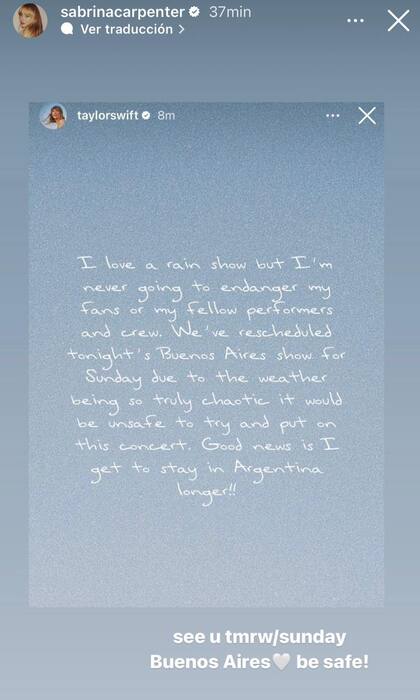 sabrinacarpenter 37min
Ver traducción >
taylorswift 8m
I love a rain show but I'm
never going to endanger my
fans or my fellow performers
and crew. We've rescheduled
tonight's Buenos Aires show for
Sunday due to the weather
being so truly chaotic it would
be unsafe to try and put on
this concert. Good news is I
get to stay in Argentina
longer!!
see u tmrw/sunday
Buenos Aires🤍 be safe!